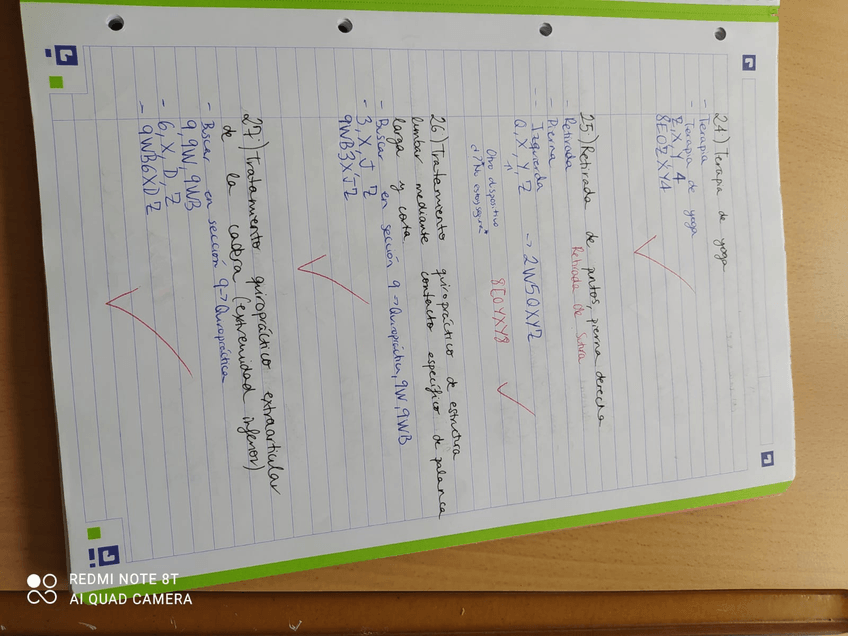 24) Terapia de yoga
- Terapia
- Terapia de yoga
Z, X, Y, 4
8E0ZXY4
25) Retirada de puntos, pierna derecha
- Retirada Retirada de Sutura
- Pierna
- Izquierda
Q, X, Y, Z -> 2W5QXYZ
Otro dispositivo
¿? No estoy segura* 8E0YXY8
26) Tratamiento quiropráctico de estructura
lumbar mediante contacto específico de palanca
larga y corta.
- Buscar en sección 9 -> Quiropráctica, 9W, 9WB
- 3, X, J, Z
9WB3XJZ
27) Tratamiento quiropráctico extraarticular
de la cadera (extremidad inferior)
- Buscar en sección 9 -> Quiropráctica
9, 9W, 9WB
- 6, X, D, Z
- 9WB6XDZ
REDMI NOTE 8T
AI QUAD CAMERA